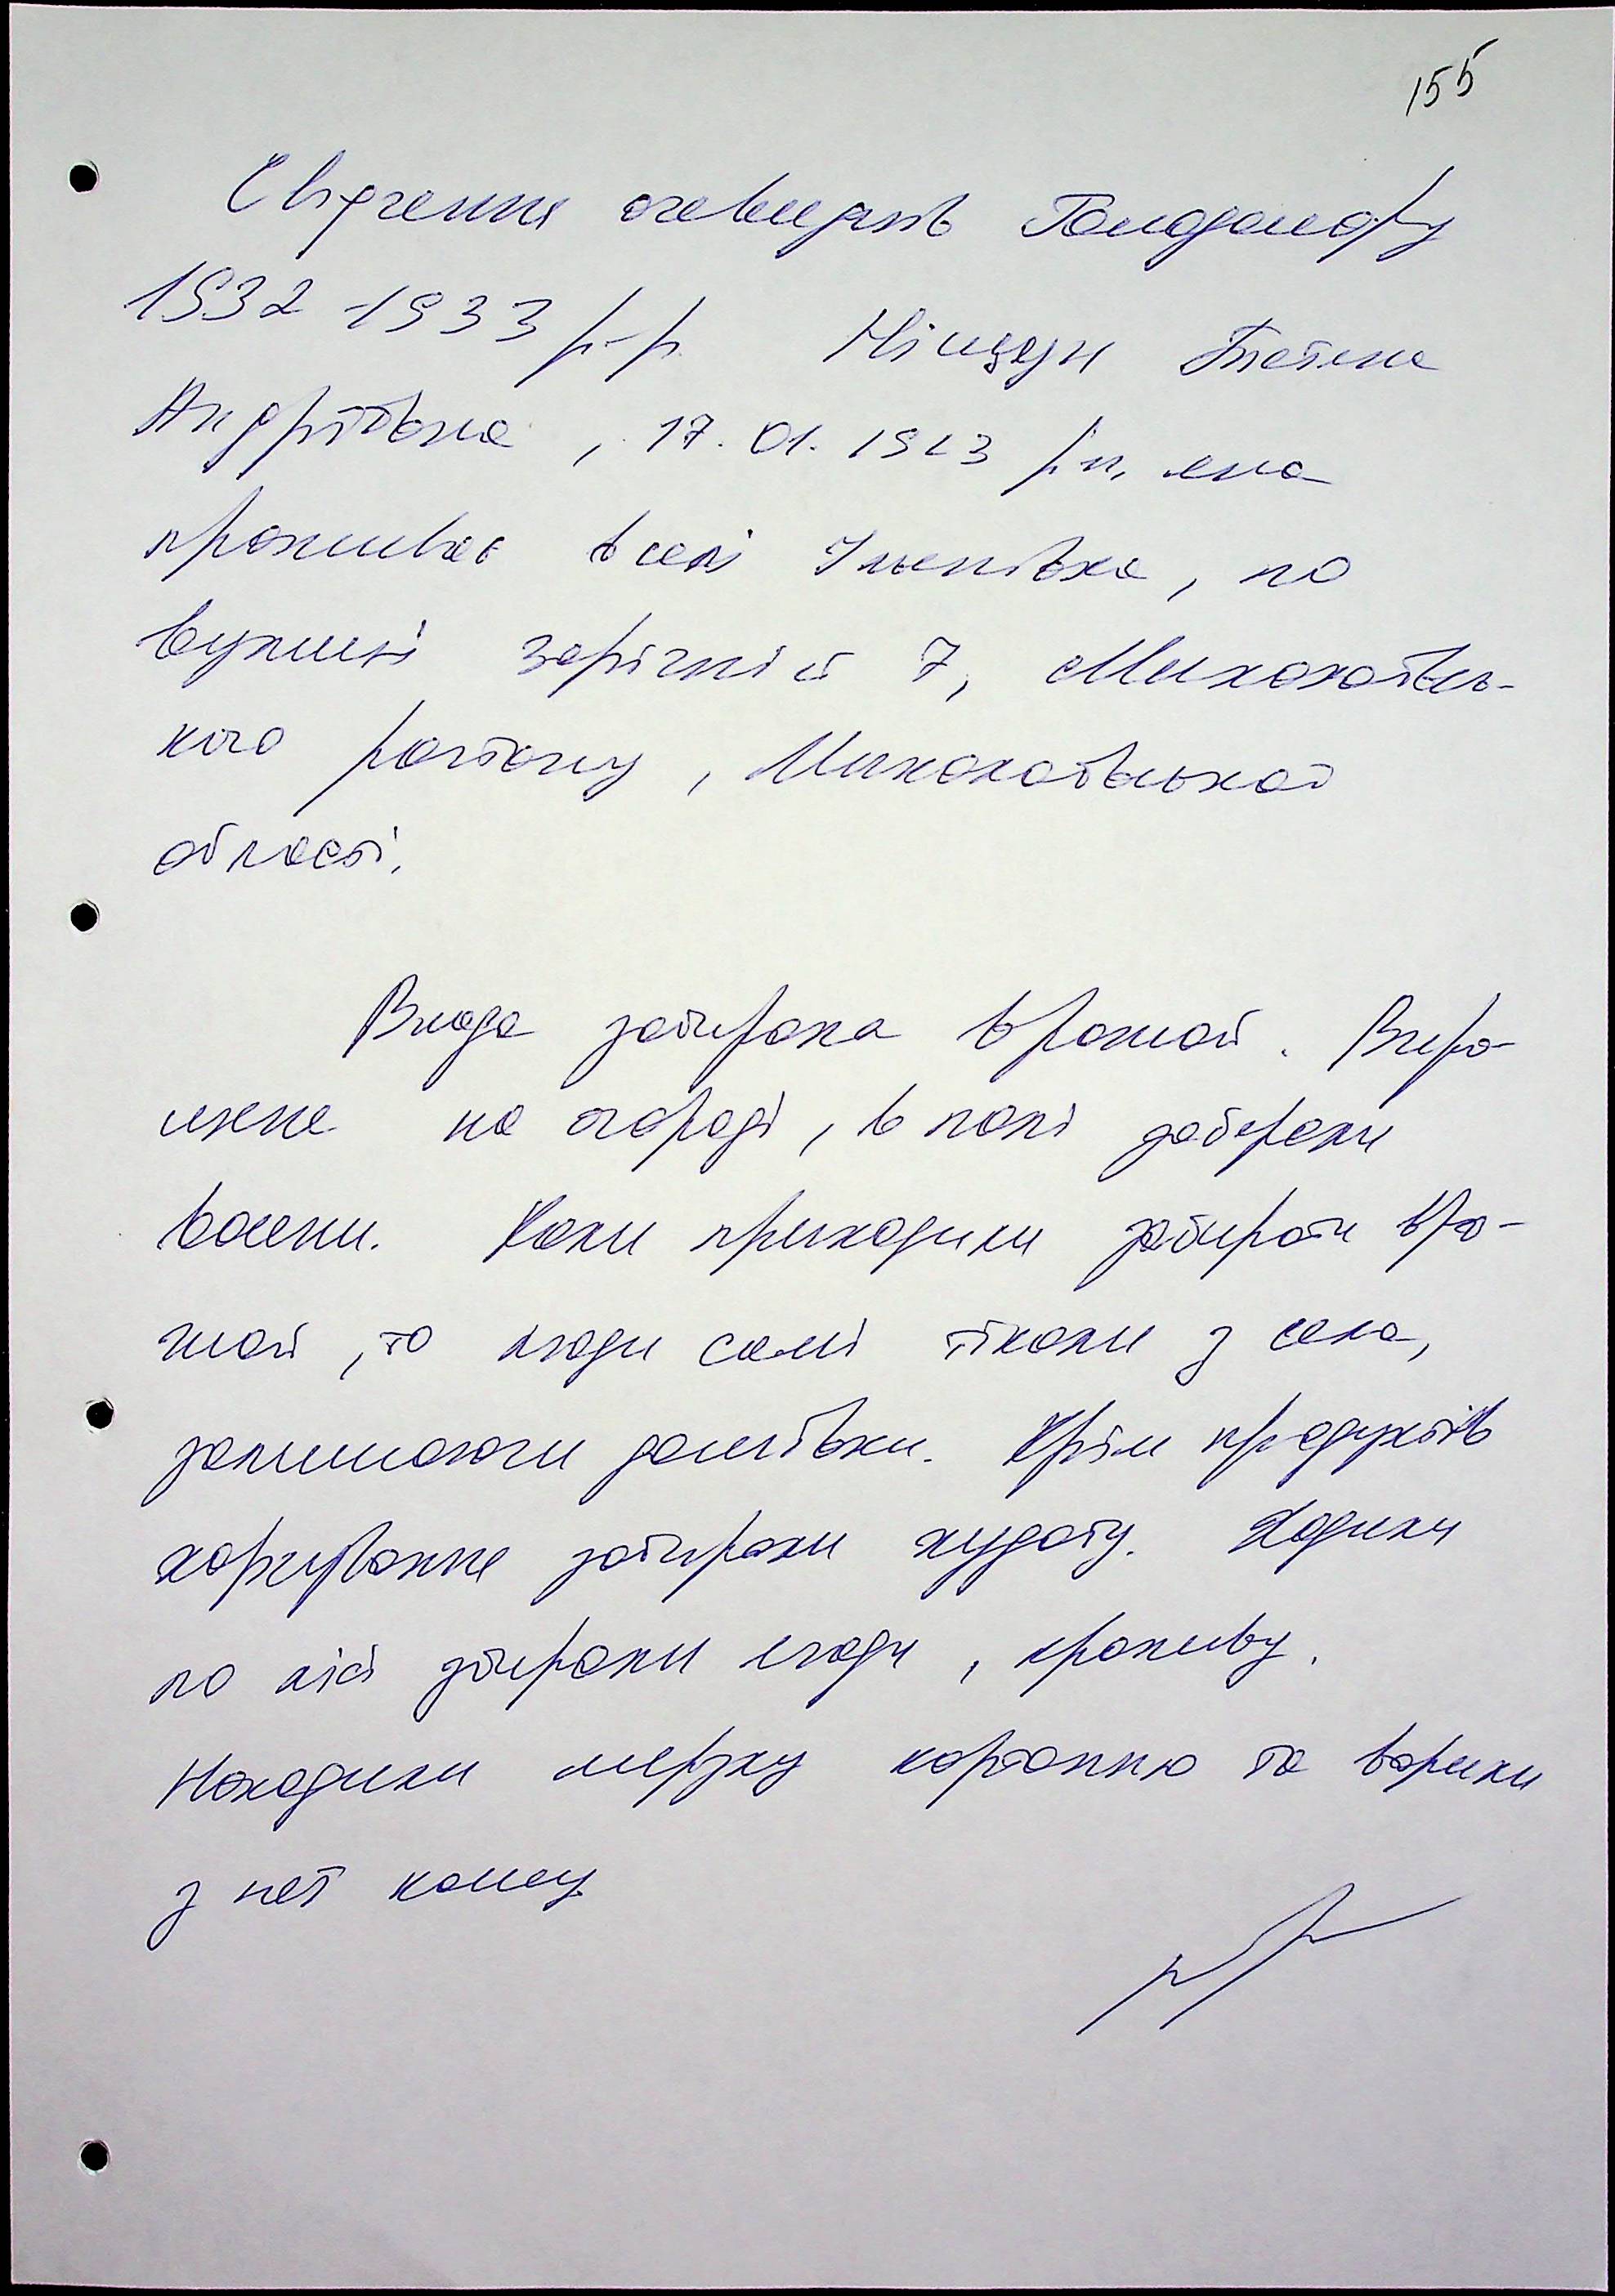 155
Свідчення очевидців Голодомору
1932-1933 р-р. Ніщун Тетяна
Андріївна, 17.01.1923 р.н, яка
проживає в селі Ульянівка, по
вулиці Зарічній 7, Миколаївсь-
кого району, Миколаївської
області.
Влада забирала врожай. Виро-
щене на городі, в полі забирали
восени. Коли приходили забирати вро-
жай, то люди самі тікали з села,
залишаючи домівки. Крім продуктів
харчування забирали худобу. Ходили
по лісі збирали ягоди, кропиву.
Находили мерзлу картоплю та варили
з неї кашу